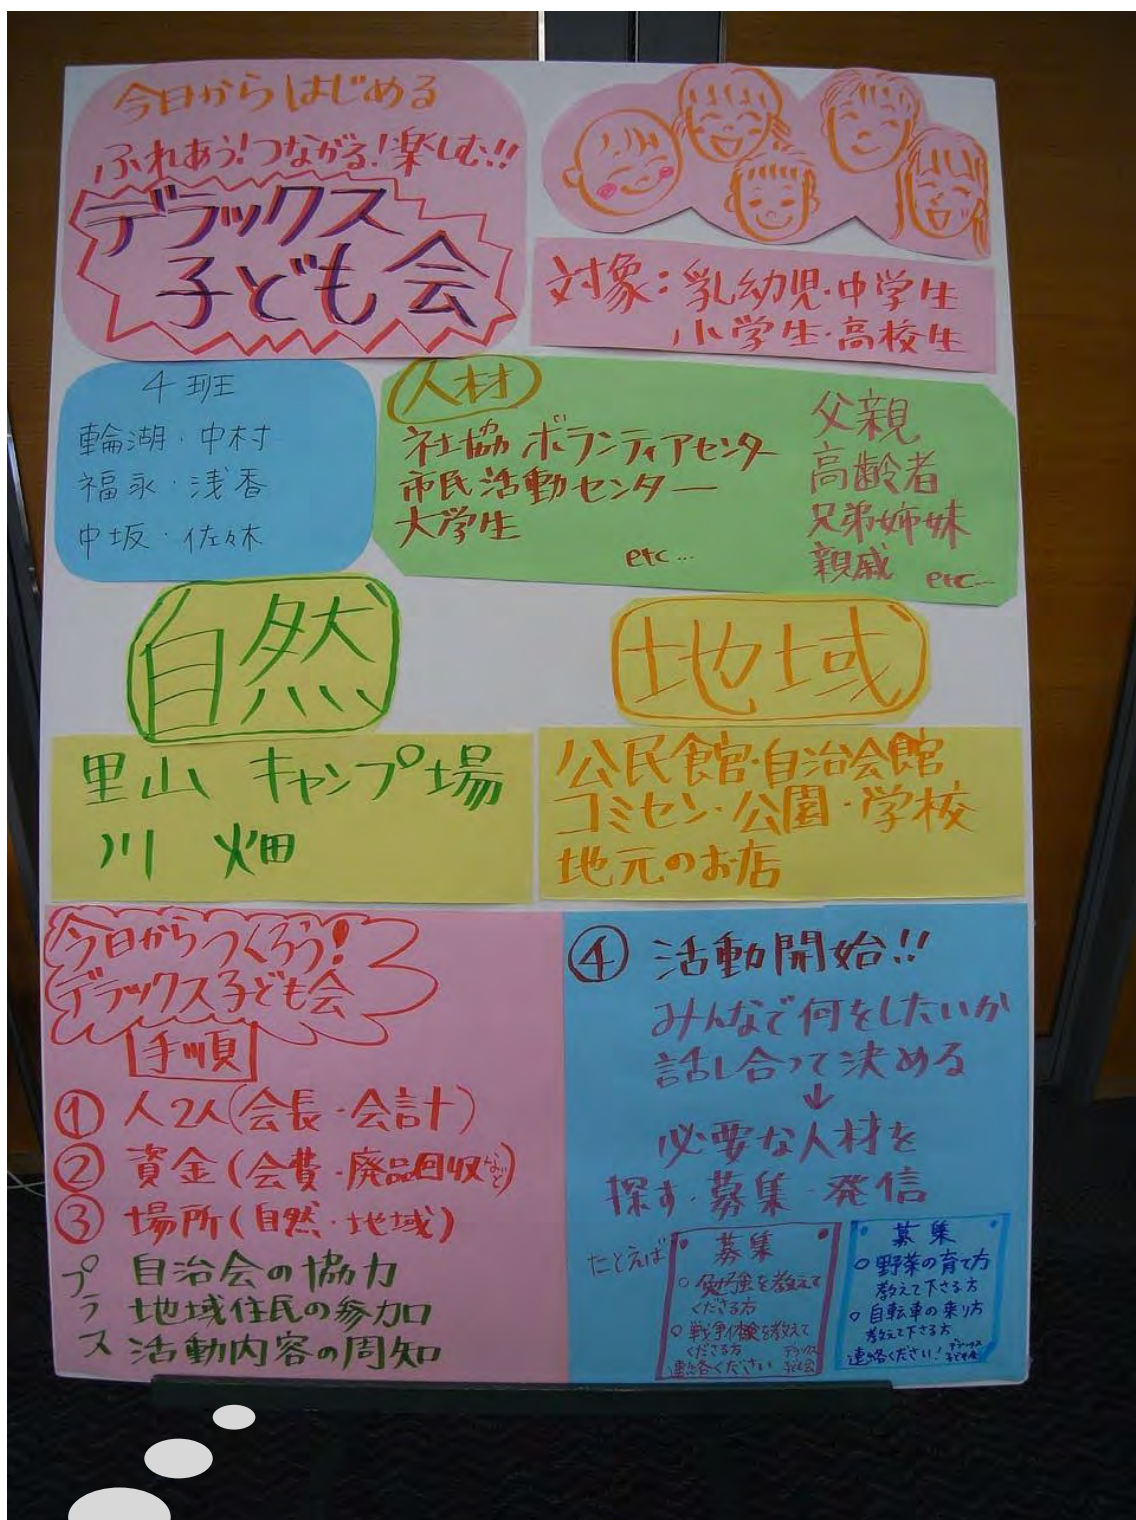 今日からはじめる
ふれあう!つながる!楽しむ!!
デラックス
子ども会
対象:乳幼児・中学生
小学生・高校生
4班
輪湖・中村
福永・浅香
中坂・佐々木
人材
社協 ボランティアセンター
市民活動センター
大学生
etc…
父親
高齢者
兄弟姉妹
親戚 etc…
自然
里山 キャンプ場
川 畑
地域
公民館・自治会館
コミセン・公園・学校
地元のお店
今日からつくろう!
デラックス子ども会
手順
① 人2人(会長・会計)
② 資金(会費・廃品回収など)
③ 場所(自然・地域)
プラス
自治会の協力
地域住民の参加
活動内容の周知
④ 活動開始!!
みんなで何をしたいか
話し合って決める
↓
必要な人材を
探す・募集・発信
たとえば
募集
○ 勉強を教えて
くださる方
○ 戦争体験を教えて
くださる方
連絡ください
デラックス
子ども会
募集
○ 野菜の育て方
教えて下さる方
○ 自転車の乗り方
教えて下さる方
連絡ください!
デラックス
子ども会